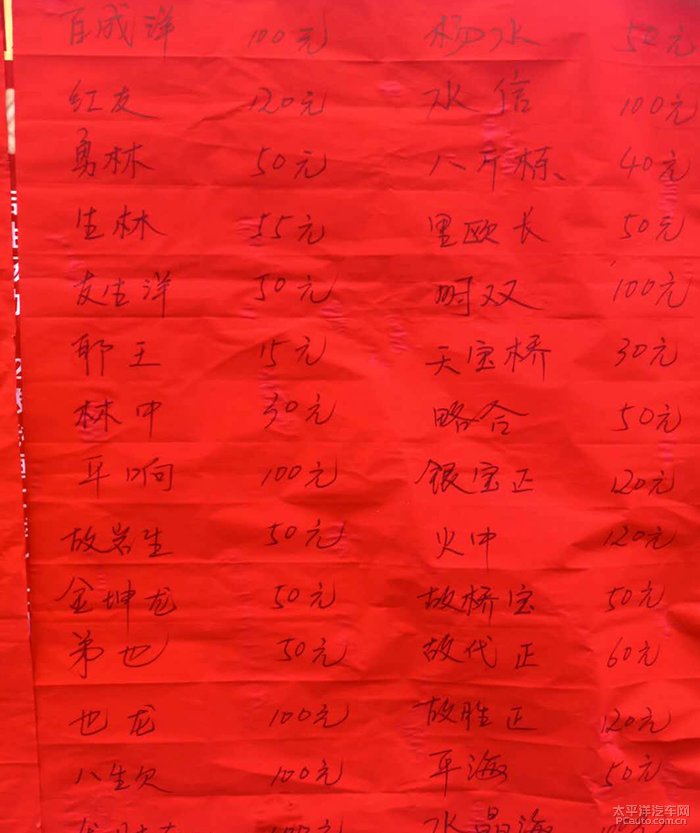 百成洋 100元 杨水 50元
红友 120元 水信 100元
勇林 50元 八斤栋 40元
生林 55元 里欧长 50元
友生洋 50元 时双 100元
耶王 15元 天宝桥 30元
林中 30元 略合 50元
平响 100元 银宝正 120元
故岩生 50元 火中 120元
金坤龙 50元 故桥宝 50元
弟也 50元 故代正 60元
也龙 100元 故胜正 120元
八生欠 100元 平海 50元
100元 水晶海
太平洋汽车网
PCauto.com.cn